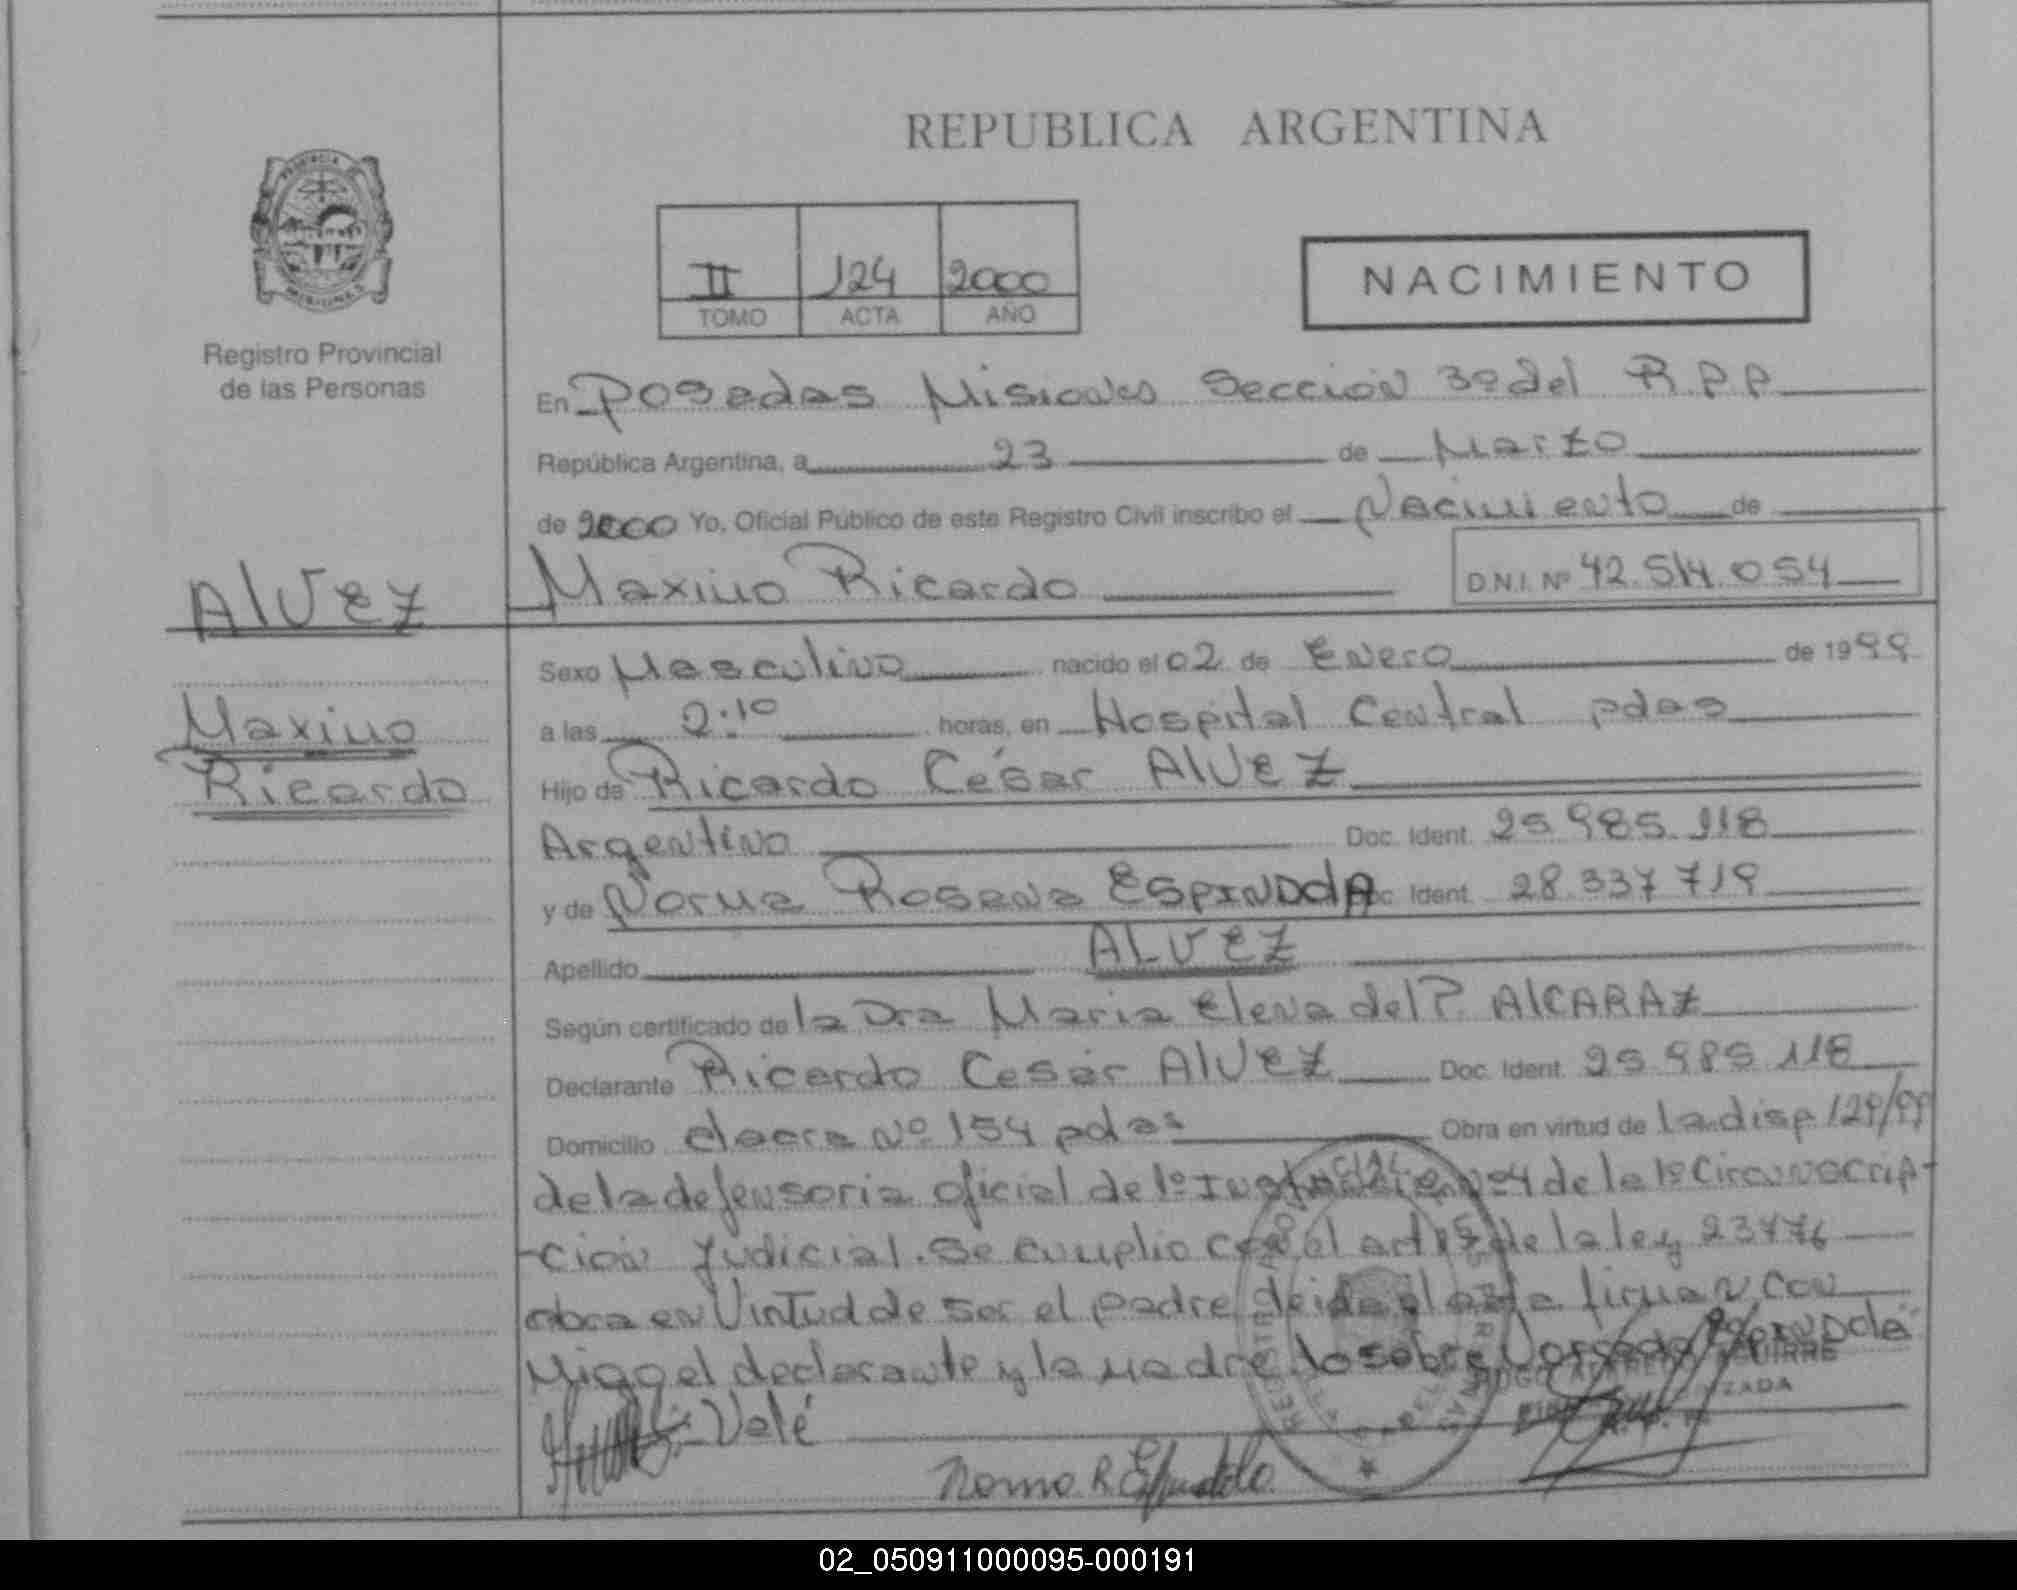 REPUBLICA ARGENTINA
PROVINCIA DE
MISIONES
Registro Provincial
de las Personas
II 124 2000
TOMO ACTA AÑO
NACIMIENTO
En Posadas Misiones Sección 3º del R.P.P
República Argentina, a 23 de Marzo
de 2000 Yo, Oficial Público de este Registro Civil inscribo el Nacimiento de
Maximo Ricardo D.N.I. Nº 42.514.054
Alvez
Maximo
Ricardo
Sexo Masculino nacido el 02 de Enero de 1999
a las 2:10 horas, en Hospital Central pdas
Hijo de Ricardo César Alvez
Argentino Doc. Ident. 25.985.118
y de Norma Rosana Espindola Doc. Ident. 28.337.719
Apellido ALVEZ
Según certificado de la Dra Maria Elena del P. Alcaraz
Declarante Ricardo Cesár Alvez Doc. Ident. 25.985.118
Domicilio chacra Nº 154 pdas Obra en virtud de la disp 129/99
de la defensoria oficial de 1º Nº4 de la 1º Circunscrip-
ción Judicial. Se cumplio con el art de la ley 23776
obra en Vintud de ser el padre firman con
migo el declarante y la madre. lo sobre Espindola
Valé
Norma R. Espindola
02_050911000095-000191